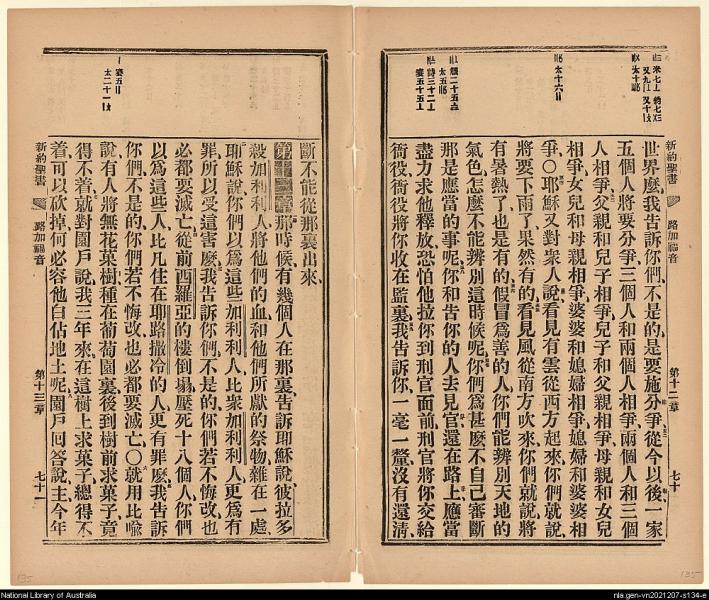 新約聖書
路加福音
第十二章
七十一
世界麼、我告訴你們、不是的、是要施分爭、從今以後一家
五個人將要分爭、三個人和兩個人相爭、兩個人和三個
人相爭、父親和兒子相爭、兒子和父親相爭、母親和女兒
相爭、女兒和母親相爭、婆婆和媳婦相爭、媳婦和婆婆相
爭、○耶穌又對衆人說、看見有雲從西方起來、你們就說、
將要下雨了、果然有的、看見風從南方吹來、你們就說、將
有暑熱了、也是有的、假冒爲善的人、你們能辨別天地的
氣色、怎麼不能辨別這時候呢、你們爲甚麼不自己審斷
那是應當的事呢、你和告你的人去見官、還在路上、應當
盡力求他釋放、恐怕他拉你到刑官面前、刑官將你交給
衙役、衙役將你收在監裏、我告訴你、一毫一釐、沒有還清、
斷不能從那裏出來、
第十三章 那時候有幾個人在那裏告訴耶穌說、彼拉多
殺加利利人、將他們的血和他們所獻的祭物、雜在一處、
耶穌說、你們以爲這些加利利人、比衆加利利人更爲有
罪、所以受這害麼、我告訴你們、不是的、你們若不悔改、也
必都要滅亡、從前西羅亞的樓倒塌、壓死十八個人、你們
以爲這些人、比凡住在耶路撒冷的人、更有罪麼、我告訴
你們、不是的、你們若不悔改、也必都要滅亡、○就用比喩
說、有人將無花菓樹種在葡萄園裏、後到樹前求菓子、竟
得不着、就對園戶說、我三年來在這樹上求菓子、總得不
着、可以砍掉、何必容他白佔地土呢、園戶回答說、主、今年
新約聖書
路加福音
第十三章
七十一
135
135
National Library of Australia
nla.gen-vn2021207-s134-e